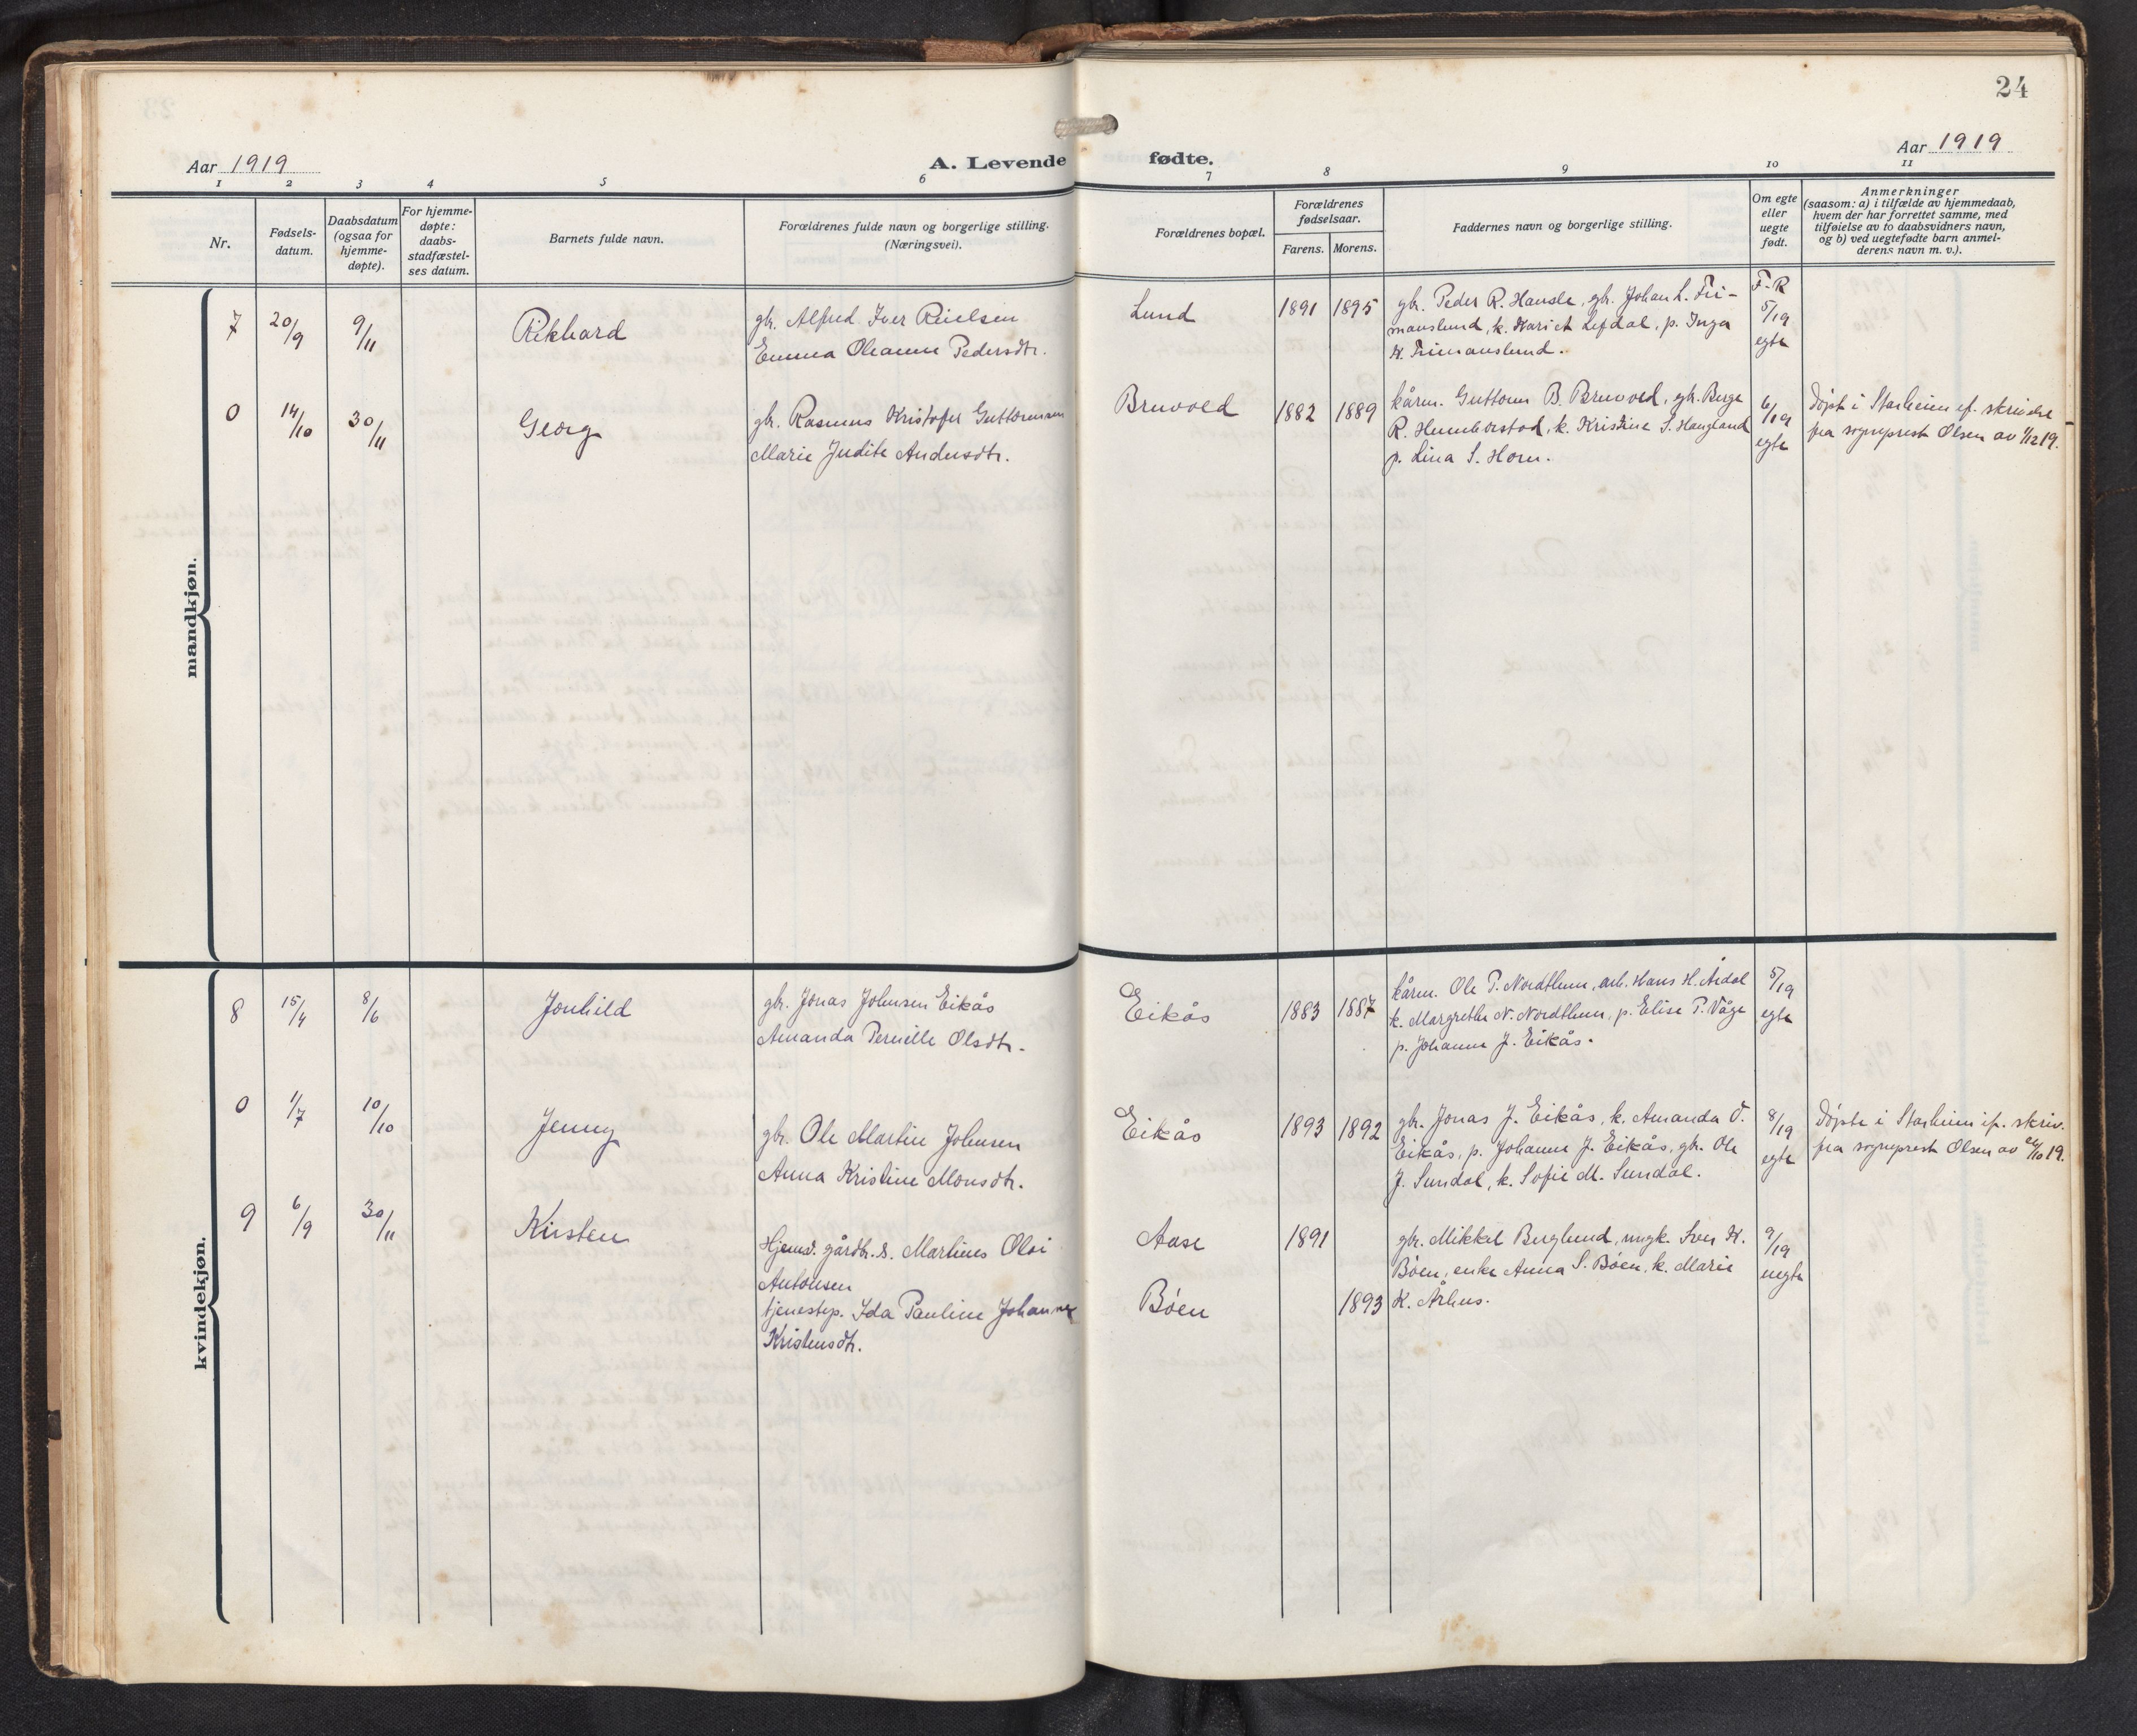 24
Aar 1919
A. Levende fødte.
Aar 1919
1 2 3 4 5 6 7 8 9 10 11
Nr.
Fødsels-
datum.
Daabsdatum
(ogsaa for
hjemme-
døpte).
For hjemme-
døpte:
daabs-
stadfæstel-
ses datum.
Barnets fulde navn.
Forældrenes fulde navn og borgerlige stilling.
(Næringsvei).
Forældrenes bopæl.
Forældrenes
fødselsaar.
Farens. Morens.
Faddernes navn og borgerlige stilling.
Om egte
eller
uegte
født.
Anmerkninger
(saasom: a) i tilfælde av hjemmedaab,
hvem der har forrettet samme, med
tilføielse av to daabsvidners navn,
og b) ved uegtefødte barn anmel-
derens navn m. v.).
mandkjøn.
7 20/9 9/11 Rikhard
gbr. Alfred Iver Reielsen
Emma Oleanne Pedersdtr.
Lund 1891 1895
gbr. Peder R. Hausle, gbr. Johan L. Tri-
manslund, k. Kari A. Lefdal, p. Inga
H. Trimanslund.
F-R
5/19
egte
0 14/10 30/11 Georg
gbr. Rasmus Kristofer Guttormsen
Marie Judite Andersdtr.
Bruvold 1882 1889
kårm. Guttorm B. Bruvold, gbr. Berge
R. Humborstad, k. Kristine S. Haugland
p. Lina S. Horn.
6/19
egte
Døpt i Starheim ef. skrivelse
fra sogneprest Olsen av 1/12 19.
kvindekjøn.
8 15/4 8/6 Jonhild
gbr. Jonas Johnsen Eikås
Amanda Pernille Olsdtr.
Eikås 1883 1887
kårm. Ole P. Nordthun, arb. Hans H. Årdal
k. Margrethe N. Nordthun, p. Elise P. Våge
p. Johanne J. Eikås.
5/19
egte
0 1/7 10/10 Jenny
gbr. Ole Martin Johnsen
Anna Kristine Monsdtr.
Eikås 1893 1892
gbr. Jonas J. Eikås, k. Amanda O.
Eikås, p. Johanne J. Eikås, gbr. Ole
J. Sundal, k. Sofie M. Sundal.
8/19
egte
Døpte i Starheim if. skriv.
fra sogneprest Olsen av /10 19.
9 6/9 30/11 Kirsten
Hjemv. gårdbr. s. Martines Olai
Antonsen
tjenestep. Ida Pauline Johanne
Kristensdtr.
Aase 1891
Bøen 1893
gbr. Mikkel Berglund, ungk. Iver H.
Bøen, enke Anna S. Bøen, k. Marie
K. Århus.
9/19
uegte